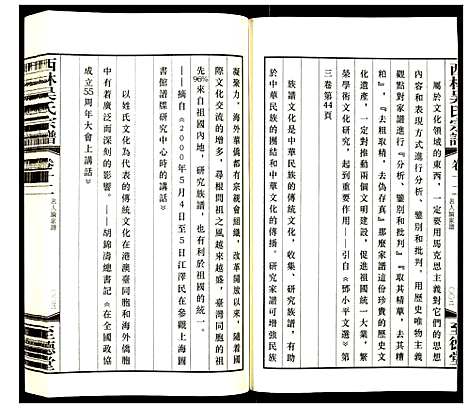 西林吴氏宗譜
卷十二
名人論家譜
至德堂
屬於文化領域的東西，一定要用馬克思主義對它們的思想
內容和表現方式進行分析、鑒別和批判，用歷史唯物主義
觀點對家譜進行『分析、鑒別和批判』『取其精華，去其糟
粕』，『去粗取精，去偽存真』那麼家譜這份珍貴的歷史文
化遺產，一定對推動兩個文明建設，促進祖國統一大業，繁
榮學術文化研究，起到重要作用——引自《鄧小平文選》第
三卷第44頁
族譜文化是中華民族的傳統文化，收集、研究族譜，有助
於中華民族的團結和中華文化的傳播。研究家譜可增強民族
凝聚力，海外華僑都有宗親會組織，改革開放以來，隨着國
際文化交流的增多，尋根問祖之風越來越盛，臺灣同胞的祖
先96%來自祖國內地，研究族譜，也有利於祖國的統一。
——摘自《2000年5月4日至5日江澤民在參觀上海圖
書館譜牒研究中心時的講話》
以姓氏文化為代表的傳統文化在港澳臺同胞和海外僑胞
中有着廣泛而深刻的影響。——胡錦濤總書記《在全國政協
成立55周年大會上講話》
西林吴氏宗譜
卷十二
名人論家譜
至德堂